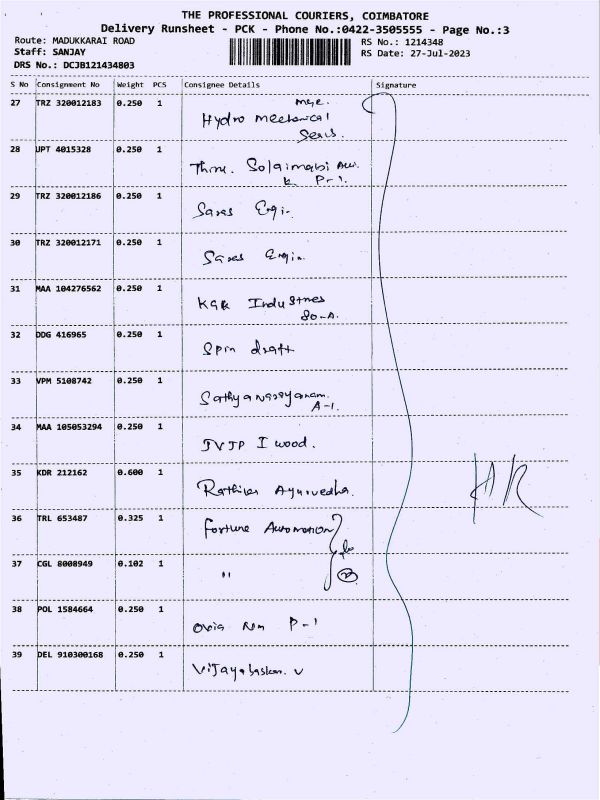 THE PROFESSIONAL COURIERS, COIMBATORE
Delivery Runsheet - PCK - Phone No.:0422-3505555 - Page No.:3
Route: MADUKKARAI ROAD RS No.: 1214348
Staff: SANJAY RS Date: 27-Jul-2023
DRS No.: DCJB121434803
S No Consignment No Weight PCS Consignee Details Signature
27 TRZ 320012183 0.250 1
Hydro Mechanical
Seals.
28 UPT 4015328 0.250 1
Thiru.
P-1.
29 TRZ 320012186 0.250 1
Sares Engi.
30 TRZ 320012171 0.250 1
Sares Engin.
31 MAA 104276562 0.250 1
Industries
80-A.
32 DDG 416965 0.250 1
Spin draft
33 VPM 5108742 0.250 1
Sathyanarayanam.
A-1.
34 MAA 105053294 0.250 1
JVJP I wood.
35 KDR 212162 0.600 1
Ayurvedha.
36 TRL 653487 0.325 1
Fortune Automation
37 CGL 8008949 0.102 1
"
38 POL 1584664 0.250 1
P-1
39 DEL 910300168 0.250 1
Vijayabaskar. V